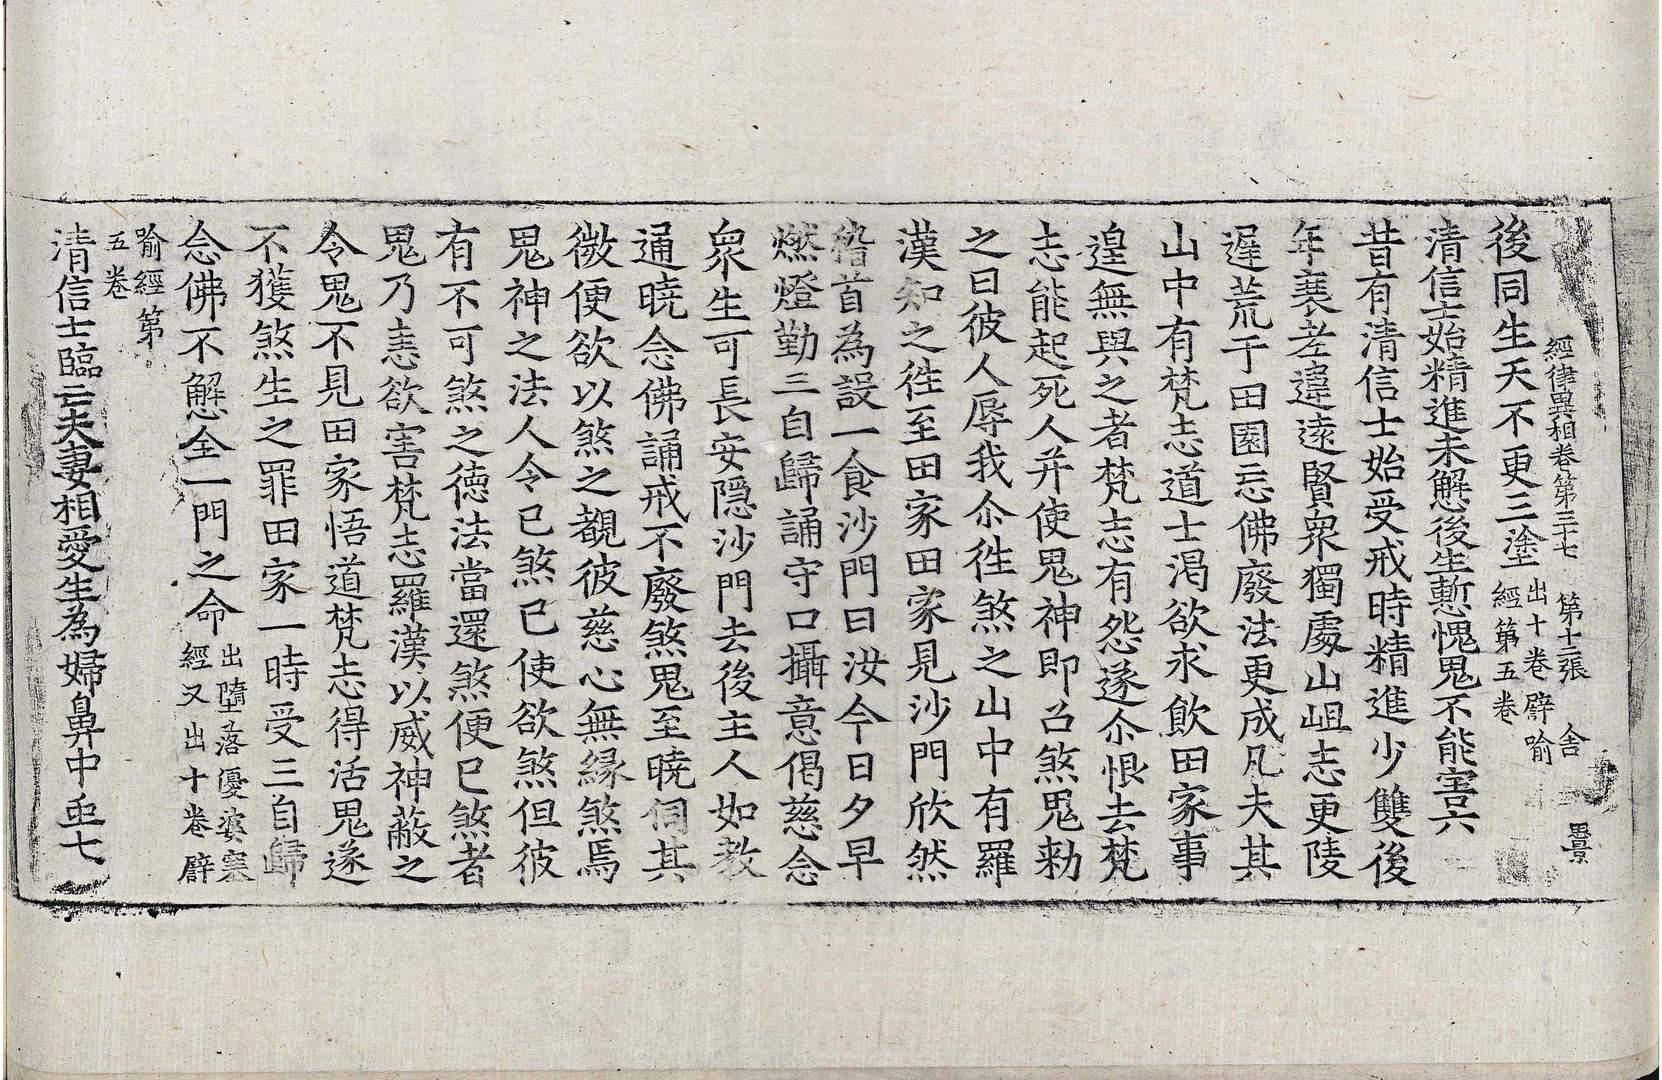 經律異相卷第三十七 第十二張 舍 景
後同生天不更三塗 出十卷譬喻
經第五卷
清信士始精進未解後生慙愧鬼不能害六
昔有清信士始受戒時精進少雙後
年衰老違遠賢衆獨處山岨志更陵
遲荒于田園忘佛廢法更成凡夫其
山中有梵志道士渴欲求飲田家事
遑無與之者梵志有怨遂尒恨去梵
志能起死人并使鬼神即召煞鬼勑
之曰彼人辱我尒徃煞之山中有羅
漢知之徃至田家田家見沙門欣然
稽首為設一食沙門曰汝今日夕早
燃燈勤三自歸誦守口攝意偈慈念
衆生可長安隱沙門去後主人如教
通曉念佛誦戒不廢煞鬼至曉伺其
微便欲以煞之覩彼慈心無緣煞焉
鬼神之法人令已煞已使欲煞但彼
有不可煞之德法當還煞便已煞者
鬼乃恚欲害梵志羅漢以威神蔽之
令鬼不見田家悟道梵志得活鬼遂
不獲煞生之罪田家一時受三自歸
念佛不懈全一門之命 出墮落優婆塞
經又出十卷譬
喻經第
五卷
清信士臨亡夫妻相愛生為婦鼻中虫七